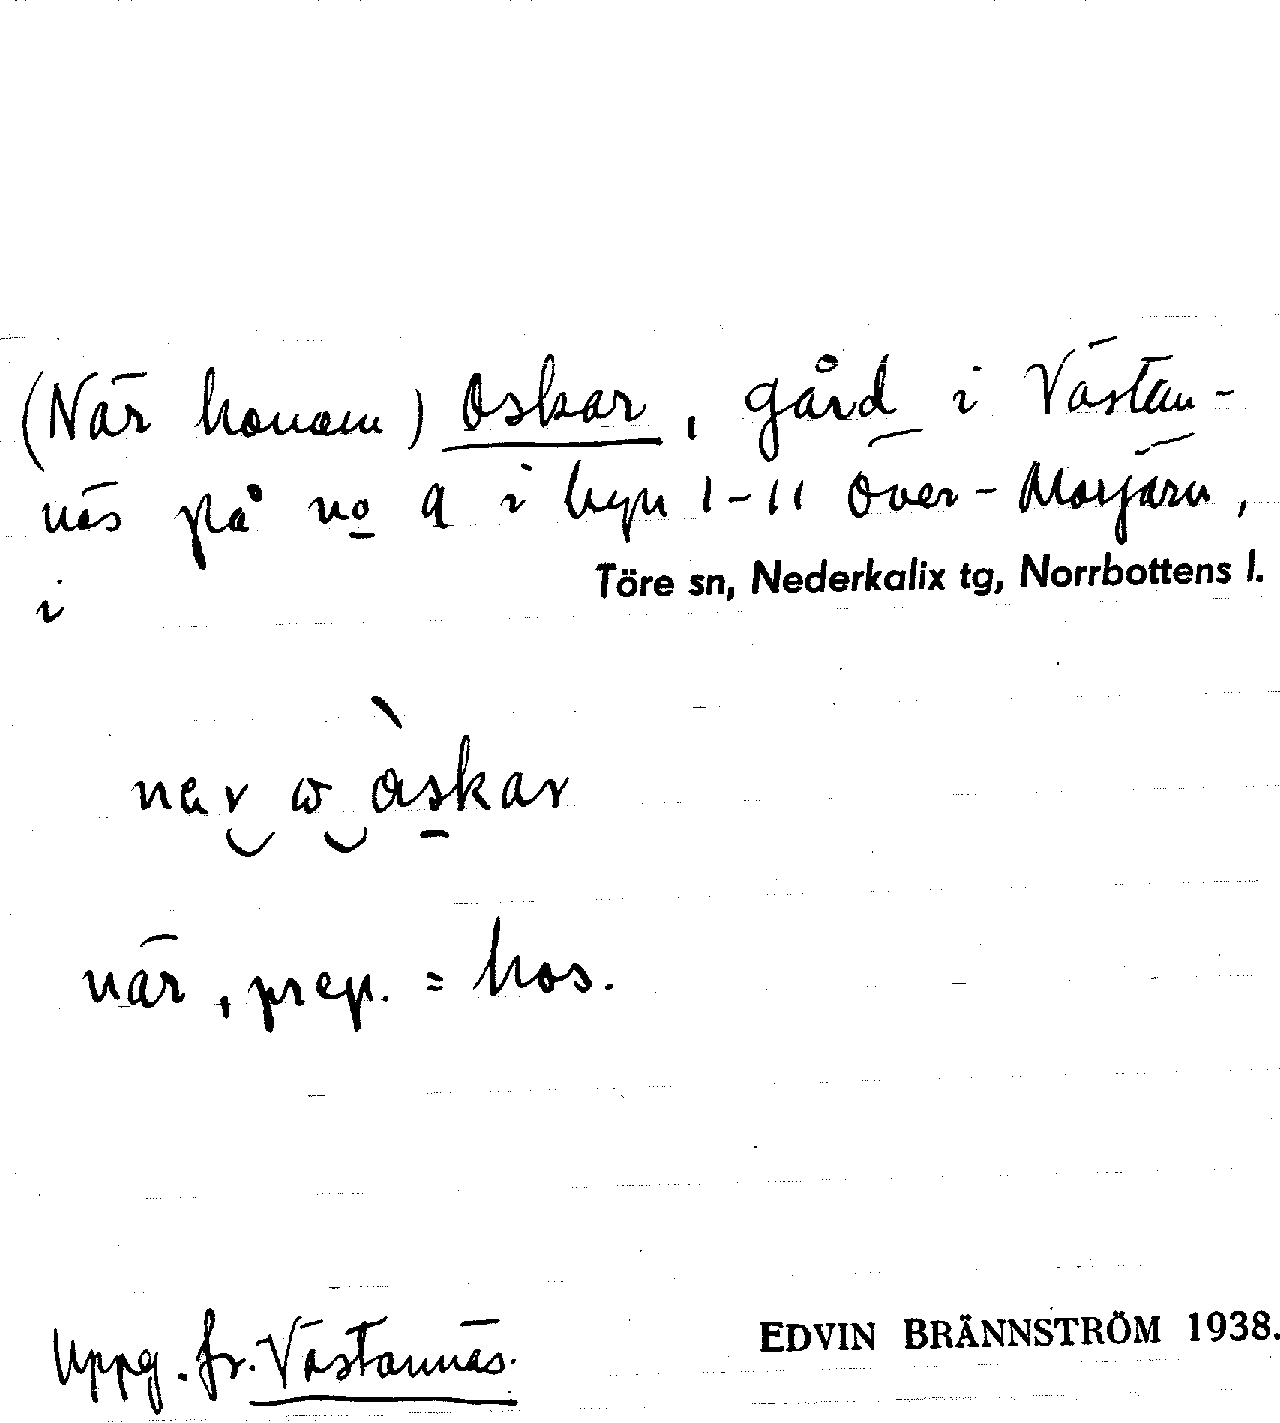 (När honom) Oskar, gård i Västan-
näs på no 9 i byn 1-11 Över-Morjärv,
i Töre sn, Nederkalix tg, Norrbottens l.
när, prep. = hos.
Uppg. fr. Västannäs.
EDVIN BRÄNNSTRÖM 1938.